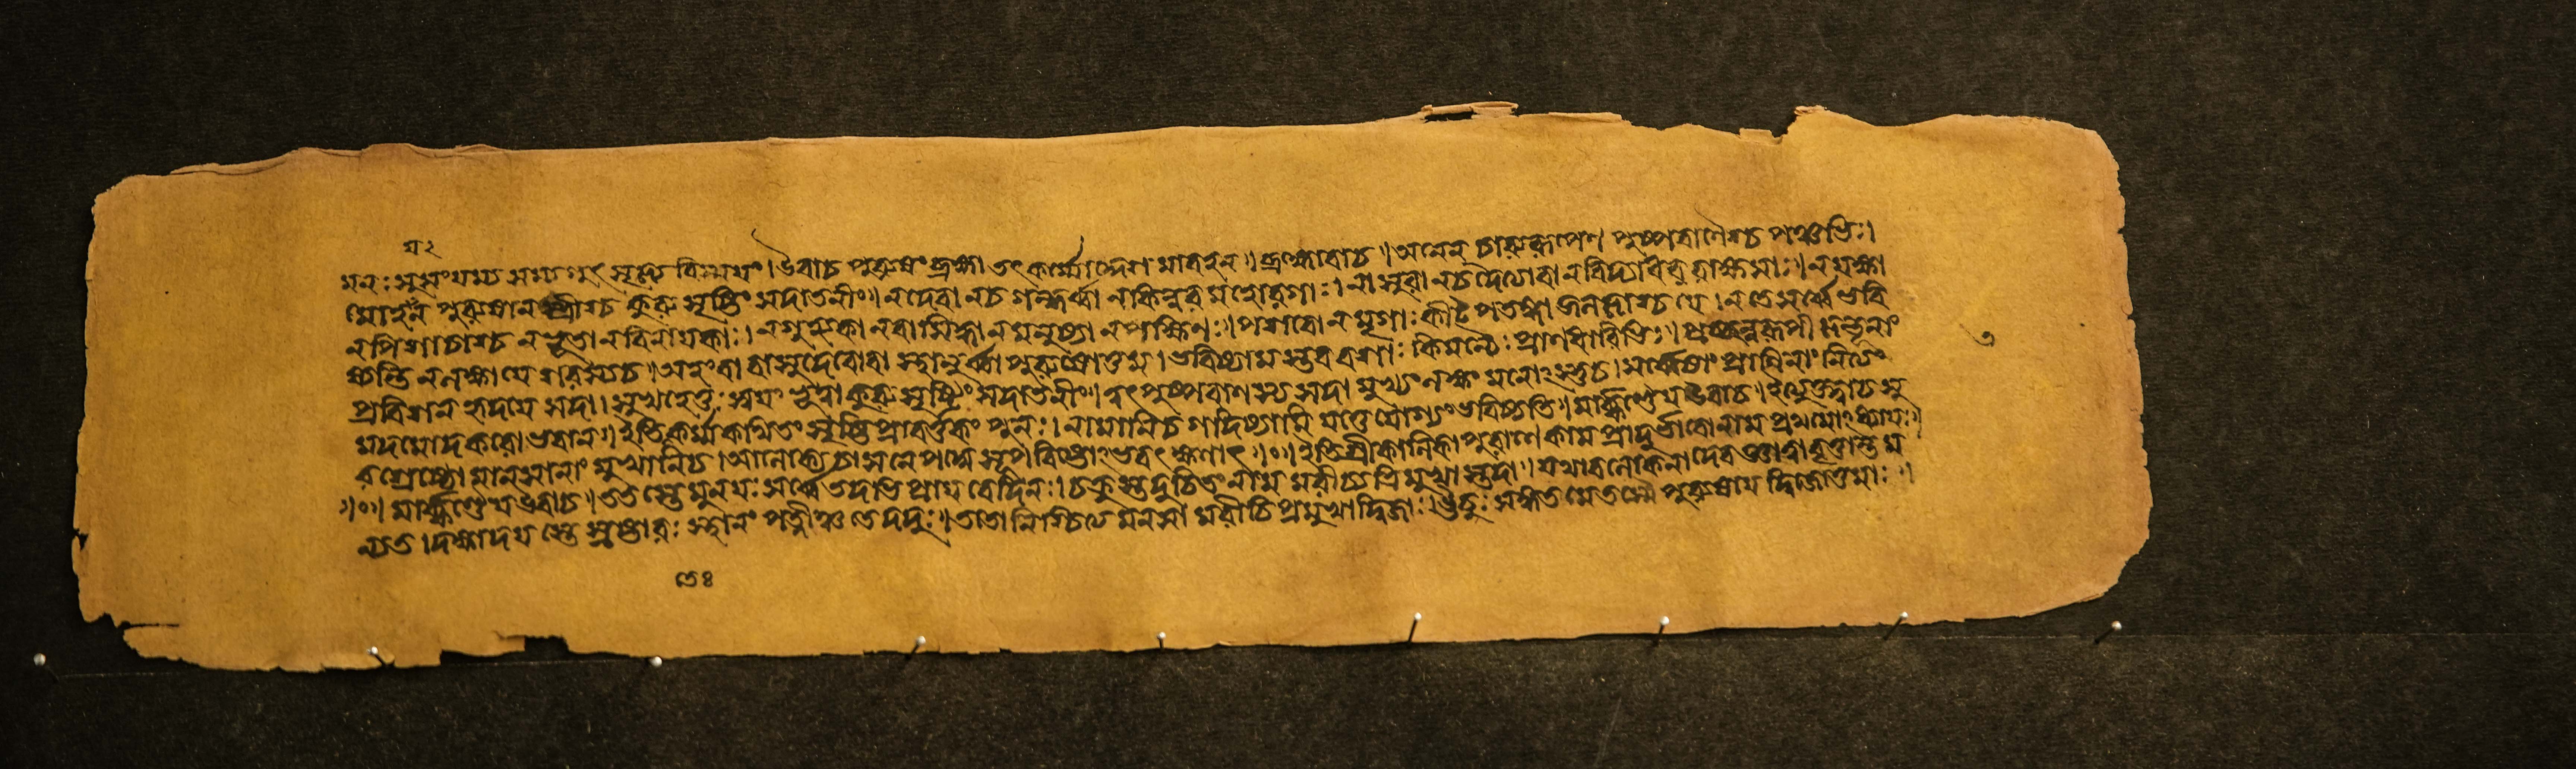 যর
মনঃ সুসংযম্য সম্যগুৎসৃজ্য বিস্ময়ং। উবাচ পুরুষং ব্রহ্মা তৎকর্ম্মোদ্দেশমাবহন॥ ব্রহ্মোবাচ। অনেন চারুরূপেণ পুষ্পবাণৈশ্চ পঞ্চভিঃ।
মোহয়ন পুরুষান স্ত্রীশ্চ কুরু সৃষ্টিং সনাতনীং॥ ন দেবা ন চ গন্ধর্ব্বা ন কিন্নর মহোরগাঃ। নাসুরা ন চ দৈত্যা বা ন বিদ্যাধর রাক্ষসাঃ॥ ন যক্ষা
ন পিশাচাশ্চ ন ভূতা ন বিনায়কাঃ। ন গুহ্যকা ন বা সিদ্ধা ন মনুষ্যা ন পক্ষিণঃ॥ পশবো ন মৃগাঃ কীট পতঙ্গা জলজাশ্চ যে। ন তে সর্ব্বে ভবি
ষ্যন্তি ন লক্ষ্যা যে শরস্য চ॥ অহং বা বাসুদেবো বা স্থাণুর্ব্বা পুরুষোত্তম। ভবিষ্যামস্তব বশাঃ কিমন্যৈঃ প্রাণধারিভিঃ॥ প্রচ্ছন্নরূপী জন্তূনাং
প্রবিশন হৃদয়ে সদা। সুখহেতুঃ স্বয়ং ভূত্বা কুরু সৃষ্টিং সনাতনীং॥ ত্বৎপুষ্পবাণস্য সদা মুখ্যং লক্ষ্যং মনোঽস্তু চ। সর্ব্বেষাং প্রাণিনাং নিত্যং
মদমোদকরো ভবান॥ ইতি কর্ম্ম কথিতং সৃষ্টিপ্রাবর্ত্তকং পুনঃ। নামানি চ গদিষ্যামি যত্তে যোগ্যং ভবিষ্যতি॥ মার্কণ্ডেয় উবাচ॥ ইত্যুক্ত্বাচ সু
রশ্রেষ্ঠো মানসানাং মুখানি চ। আলোক্য চাসনে পদ্মে সূপবিষ্টোঽভবৎ ক্ষণাৎ॥০॥ ইতি শ্রীকালিকাপুরাণে কামপ্রাদুর্ভাবো নাম প্রথমোঽধ্যায়ঃ॥
॥০॥ মার্কণ্ডেয় উবাচ॥ ততস্তে মুনয়ঃ সর্ব্বে তদাভিপ্রায়বেদিনঃ। চক্রুস্তদুচিতং নাম মরীচ্যত্রিমুখাস্তদা॥ যথাবলোকনাদেব জ্ঞাত্বা বৃত্তান্তম
ন্যত। দক্ষাদয়স্তে স্রষ্টারঃ স্থানং পত্নীঞ্চ তে দদুঃ॥ ততো নিশ্চিত্য মনসা মরীচিপ্রমুখা দ্বিজাঃ। ঊচুঃ সঙ্গতমেতস্মৈ পুরুষায় দ্বিজোত্তমাঃ॥